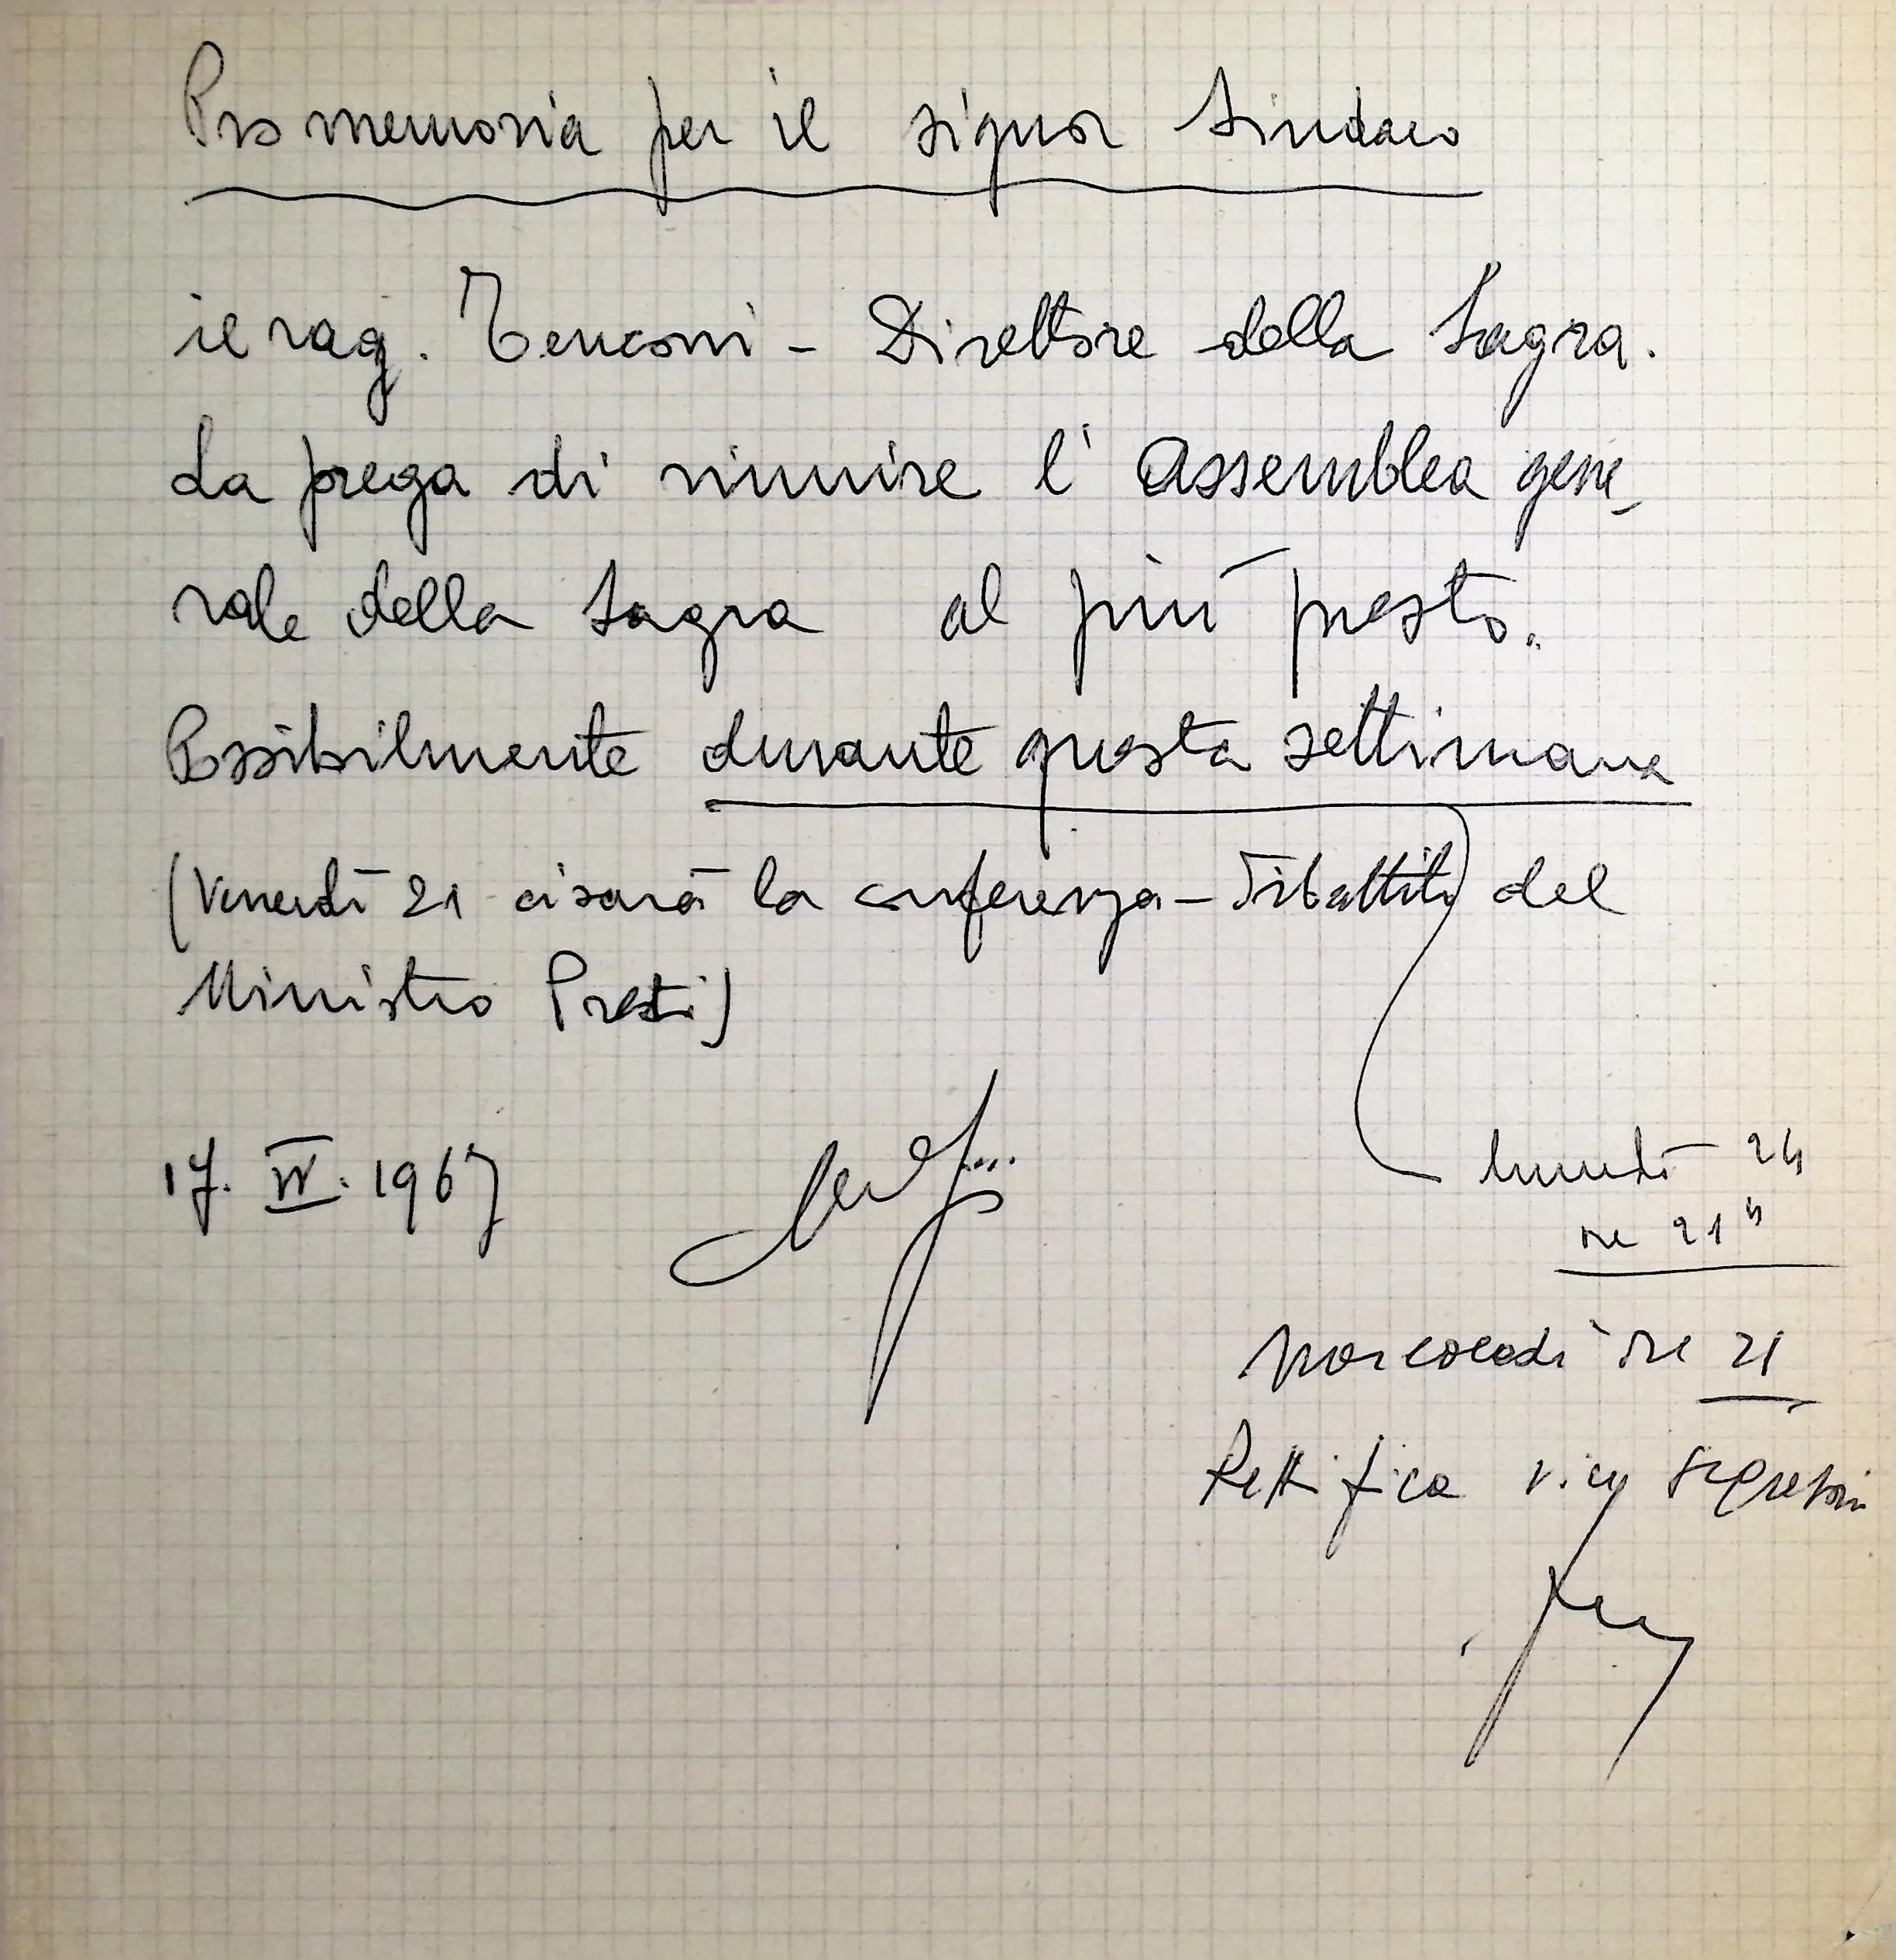 Pro memoria per il signor Sindaco
il rag. Tenconi - Direttore della Sagra.
La prega di riunire l'Assemblea gene_
rale della Sagra al più presto.
Possibilmente durante questa settimana
(Venerdì 21 ci sarà la conferenza - Dibattito del
Ministro Preti)
17. IV. 1967
lunedì 24
ore 21 h
Mercoledì ore 21
Rettifica vice segretari